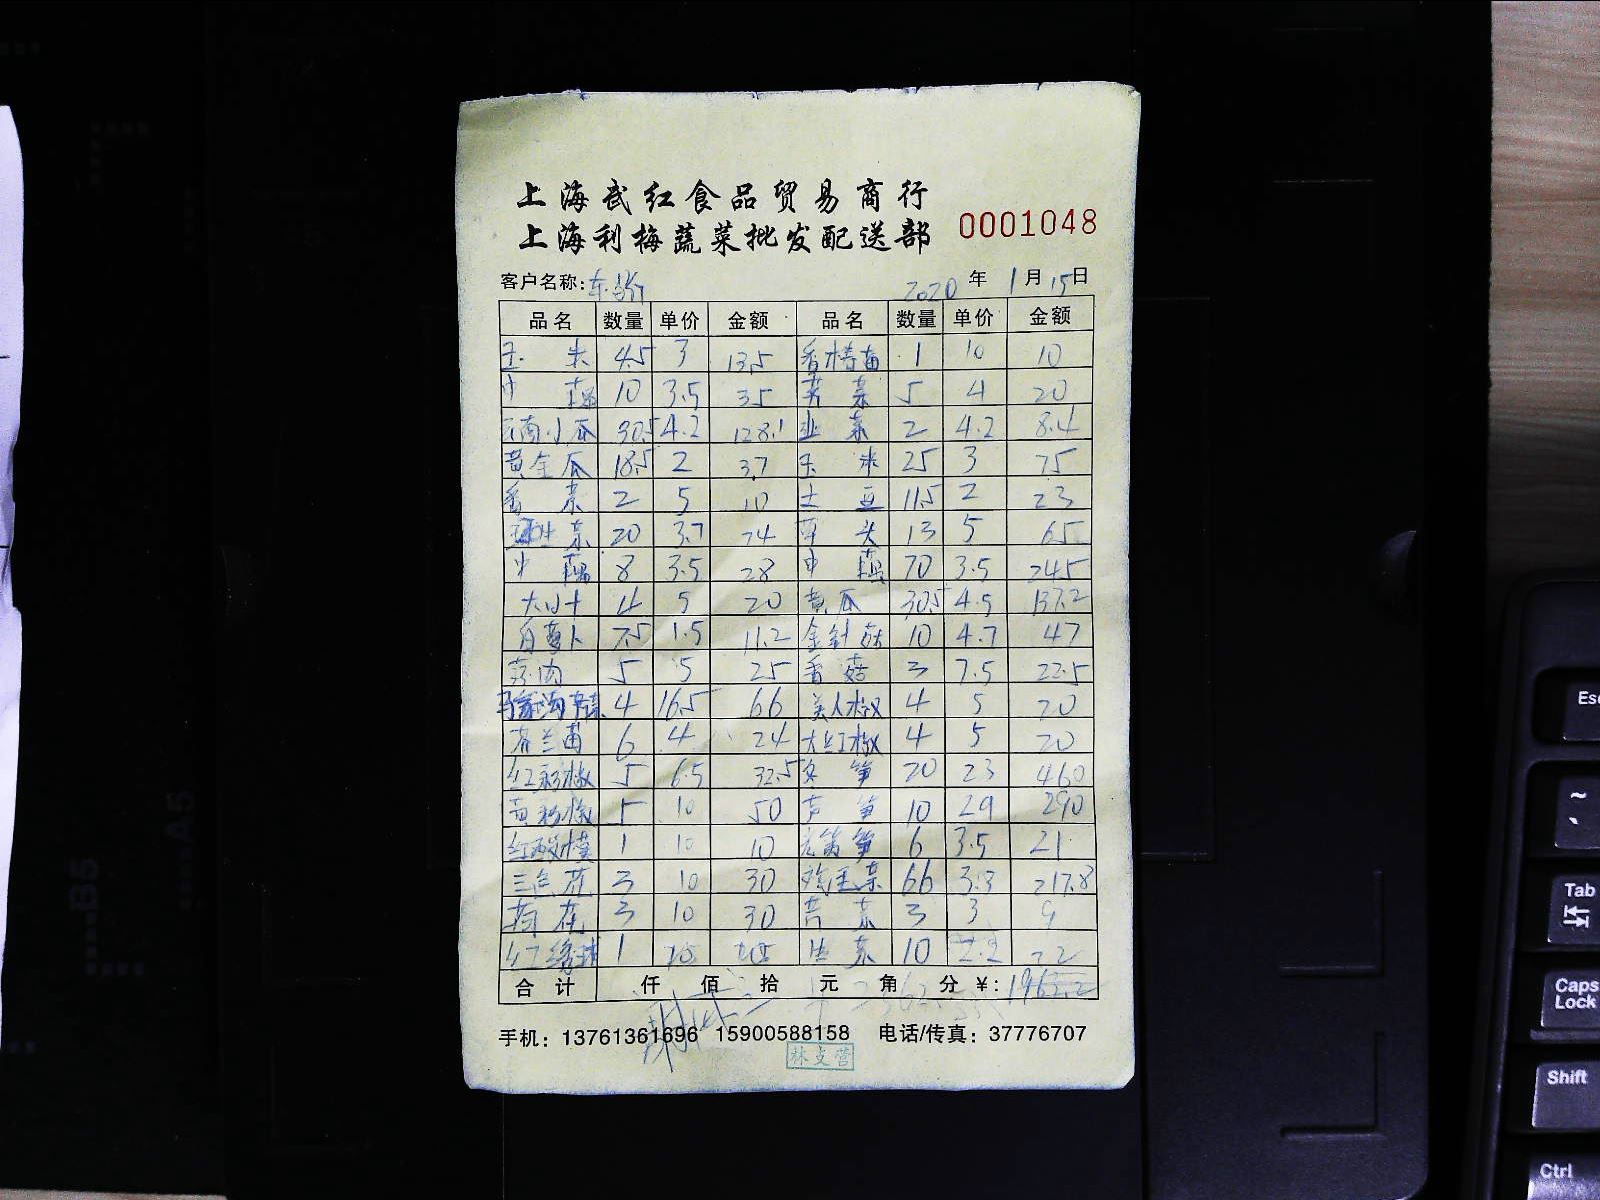 上海武红食品贸易商行
上海利梅蔬菜批发配送部 0001048
客户名称: 2020年1月15日
品名 数量 单价 金额 品名 数量 单价 金额
玉米 4.5 3 13.5 香椿苗 1 10 10
中藕 10 3.5 35 芹菜 5 4 20
云南小瓜 30.5 4.2 128.1 韭菜 2 4.2 8.4
黄金瓜 18.5 2 37 玉米 25 3 75
香菜 2 5 10 土豆 11.5 2 23
球生菜 20 3.7 74 草头 13 5 65
中藕 8 3.5 28 中藕 70 3.5 245
大叶 4 5 20 黄瓜 30.5 4.5 137.2
白萝卜 7.5 1.5 11.2 金针菇 10 4.7 47
5 5 25 香菇 3 7.5 22.5
4 16.5 66 美人椒 4 5 20
荷兰苗 6 4 24 大红椒 4 5 20
红彩椒 5 6.5 32.5 冬笋 20 23 460
黄彩椒 5 10 50 芦笋 10 29 290
1 10 10 莴笋 6 3.5 21
三色花 3 10 30 鸡毛菜 66 3.3 217.8
菊花 3 10 30 菜 3 3 9
1 生菜 10 2.2 22
合计 仟 佰 拾 元 角 分 ¥:
手机：13761361696 15900588158 电话/传真：37776707